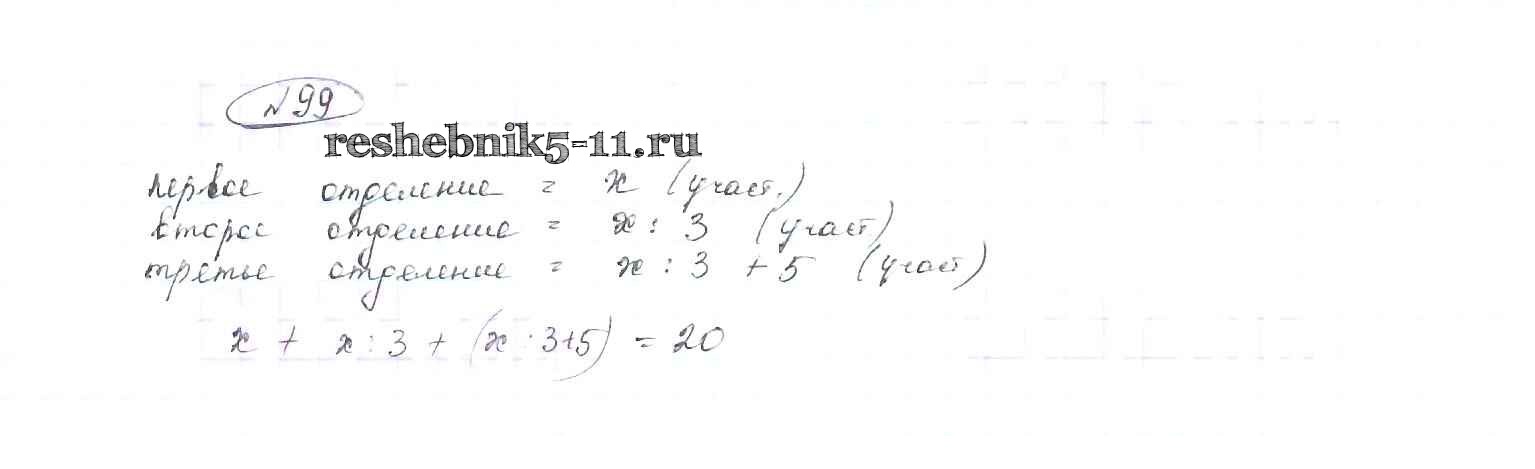 №99
reshebnik5-11.ru
первое отделение = x (участ.)
второе отделение = x : 3 (участ)
третье отделение = x : 3 + 5 (участ)
x + x : 3 + (x · 3+5) = 20